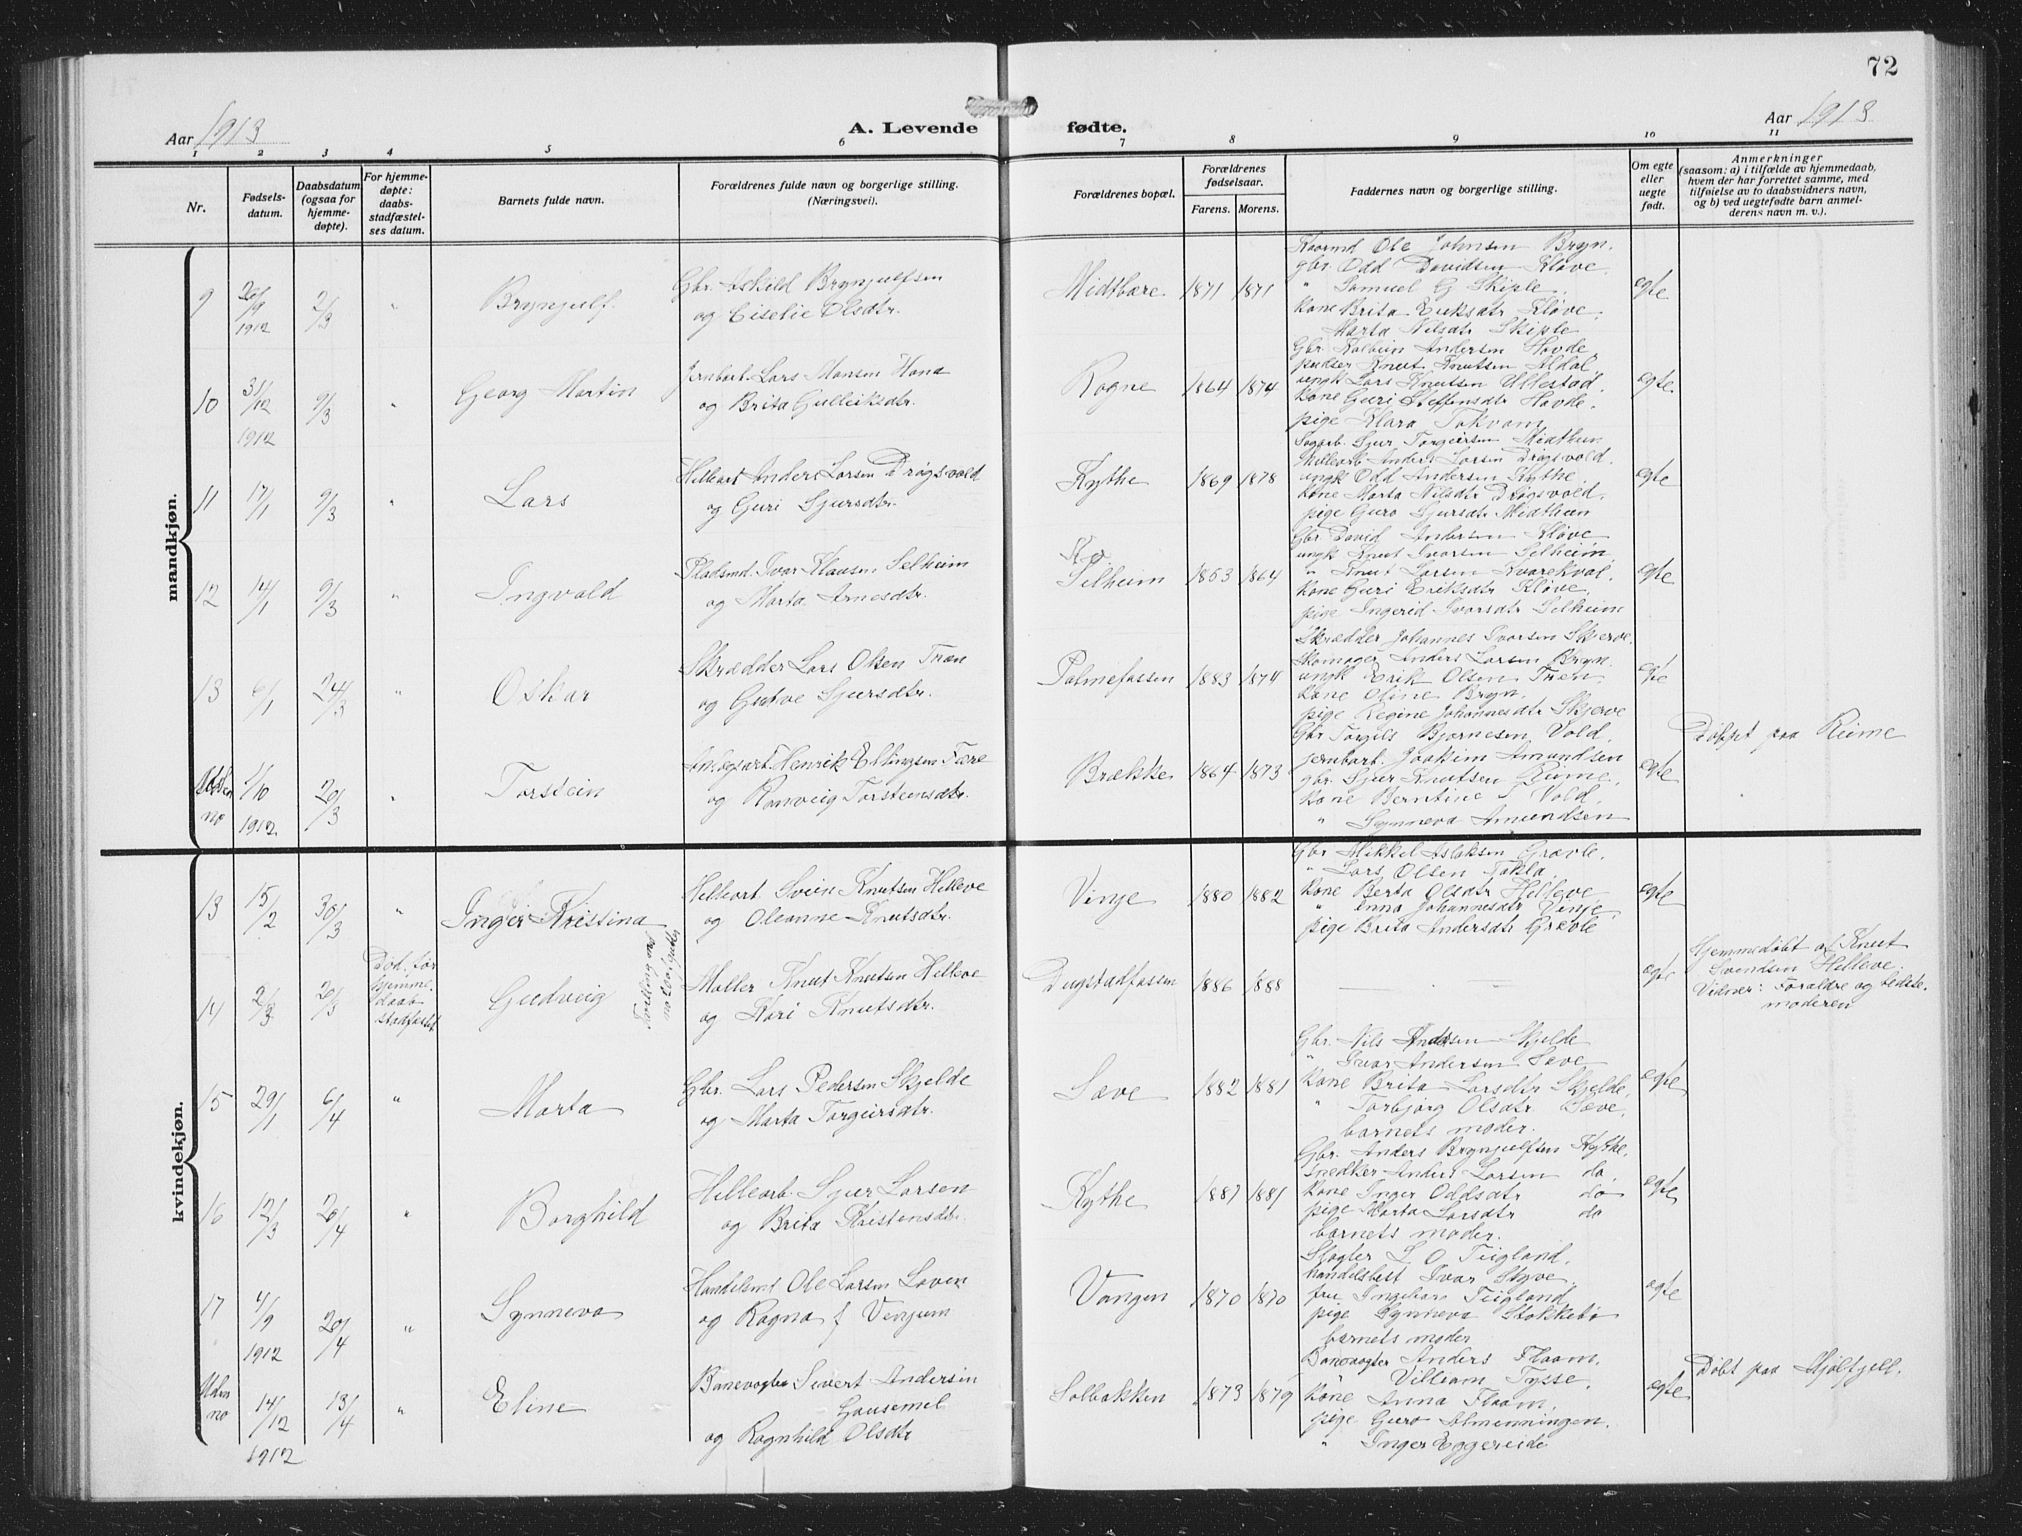 72
Aar 1913
A. Levende fødte.
Aar 1913
1 2 3 4 5 6 7 8 9 10 11
Nr.
Fødsels-
datum.
Daabsdatum
(ogsaa for
hjemme-
døpte).
For hjemme-
døpte:
daabs-
stadfæstel-
ses datum.
Barnets fulde navn.
Forældrenes fulde navn og borgerlige stilling.
(Næringsvei).
Forældrenes bopæl.
Forældrenes
fødselsaar.
Farens. Morens.
Faddernes navn og borgerlige stilling.
Om egte
eller
uegte
født.
Anmerkninger
(saasom: a) i tilfælde av hjemmedaab,
hvem der har forrettet samme, med
tilføielse av to daabsvidners navn,
og b) ved uegtefødte barn anmel-
derens navn m. v.).
mandkjøn.
9 20/9 1912 2/3 " Brynjulf.
Gbr. Askild Brynjulfsen
og Eiselie Olsdtr.
Midtbære 1871 1871
Ole Johnsen Bryn.
gbr. Odd Davidsen Kløve.
" Samuel G Skiple.
kone Brita Eriksdtr Kløve.
Marta Nilsdtr Skiple
egte
10 31/12 1912 9/3 " Georg Martin
Jernbarb. Lars Monsen Hona
og Brita Gulleiksdtr.
Rogne 1864 1874
Gbr. Kolbein Andersen Hovde,
pudser Knut Knutsen
ungk Lars Knutsen Ullestad.
kone Guri Steffensdtr Hovde.
pige Klara Tokvam
egte.
11 17/1 9/3 " Lars
Hellearb Anders Larsen Drøgsvold
og Guri Sjursdtr.
Kythe 1869 1878
Sagarb. Sjur Torgeirsen Midthun
Hellearb Anders Larsen Drøgsvold.
ungk Odd Andersen Kythe.
kone Marta Nilsdtr Drøgsvold.
pige Guro Sjursdtr Midthun
egte
12 14/1 9/3 " Ingvald
Pladsmd. Ivar Klausen Selheim
og Marta Arnesdtr.
Selheim 1853 1864
Gbr David Andersen Kløve
ungk Knut Ivarsen Selheim
" Knut Larsen Kvarekval,
kone Guri Eriksdtr Kløve,
pige Ingerid Ivarsdtr Selheim
egte
13 6/1 24/3 " Oskar
Skrædder Lars Olsen Træn
og Gudve Sjursdtr.
Palmefossen 1883 1874
Skrædder Johannes Ivarsen Skjerve.
Skomager Anders Larsen Bryn.
ungk Erik Olsen Træn.
kone Oline Bryn.
pige Regine Johannesdtr Skjerve
egte
Uden no 1/10 1912 20/3 " Torstein
Henrik Ellingsen Fære
og Ranveig Torsteinsdtr.
Brække 1864 1873
Gbr Torgils Bjørnesen Vold.
jernbarb. Joakim Amundsen
gbr. Sjur Knutsen Reime.
kone Berntine S Vold.
" Synneva Amundsen
egte
Døbt paa Reime
kvindekjøn.
13 15/2 30/3 " Inger Kristina
Hellearb Svein Knutsen Helleve
og Oleanne Knutsdtr.
Vinje 1880 1882
Gbr Mikkel Aslaksen Græve.
" Lars Olsen Takla.
kone Berta Olsdtr Helleve
" Anna Johannesdtr Vinje
pige Brita Andersdtr Græve
egte
14 2/3 20/3
Død før
hjemme-
daab
stadfæstet
Gudveig
Tvilling med
Møller Knut Knutsen Helleve
og Kari Knutsdtr.
Dugstadfossen 1886 1888
egte
Hjemmedøbt af Knut
Svendsen Helleve.
Vidner: Forældre og bedste-
moderen
15 29/1 6/4 " Marta
Gbr. Lars Pedersen Skjelde
og Marta Torgeirsdtr.
Sæve 1882 1881
Gbr. Nils Andersen Skjelde
" Ivar Andersen Sæve
kone Brita Larsdtr Skjelde.
" Torbjørg Olsdtr Sæve.
barnets moder.
egte
16 12/3 20/4 " Borghild
Hellearb. Sjur Larsen
og Brita Kristensdtr.
Kythe 1887 1881
Gbr. Anders Brynjulfsen Kythe.
Snedker Anders Larsen do,
kone Inger Oddsdtr do
pige Marta Larsdtr do
barnets moder.
egte
17 4/9 1912 20/4 " Synneva
Handelsmd Ole Larsen Loven
og Ragna f Venjum
Vangen 1870 1870
Slagter L O Teigland.
handelsbest Ivar Styve.
fru Ingebor Teigland
pige Synneva Stokkebø
barnets moder
egte
Uden no 14/12 1912 13/4 " Eline
Banevogter Sivert Andersen
Gausemel
og Ragnhild Olsdtr
Solbakken 1873 1879
Banevogter Anders Flaam.
Villiam Tysse.
kone Anna Flaam.
pige Guro Almenningen.
" Inger Eggereide
egte
Døbt paa Mjølfjell.